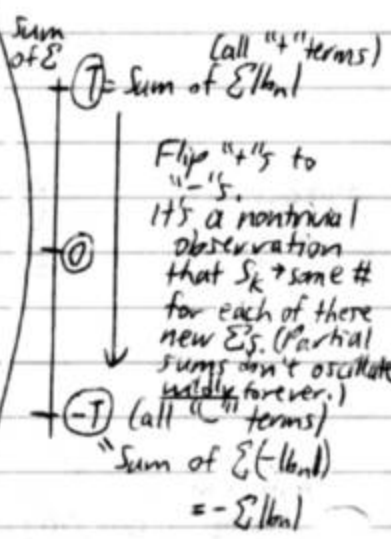 Sum
of Σ
(all "+" terms)
T = Sum of Σ|bₙ|
Flip "+"s to
"-"s.
It's a nontrivial
observation
0
that Sₖ → some #
for each of these
new Σs. (Partial
sums don't oscillate
wildly forever.)
-T (all "-" terms)
"Sum of Σ(-|bₙ|)
= -Σ|bₙ|